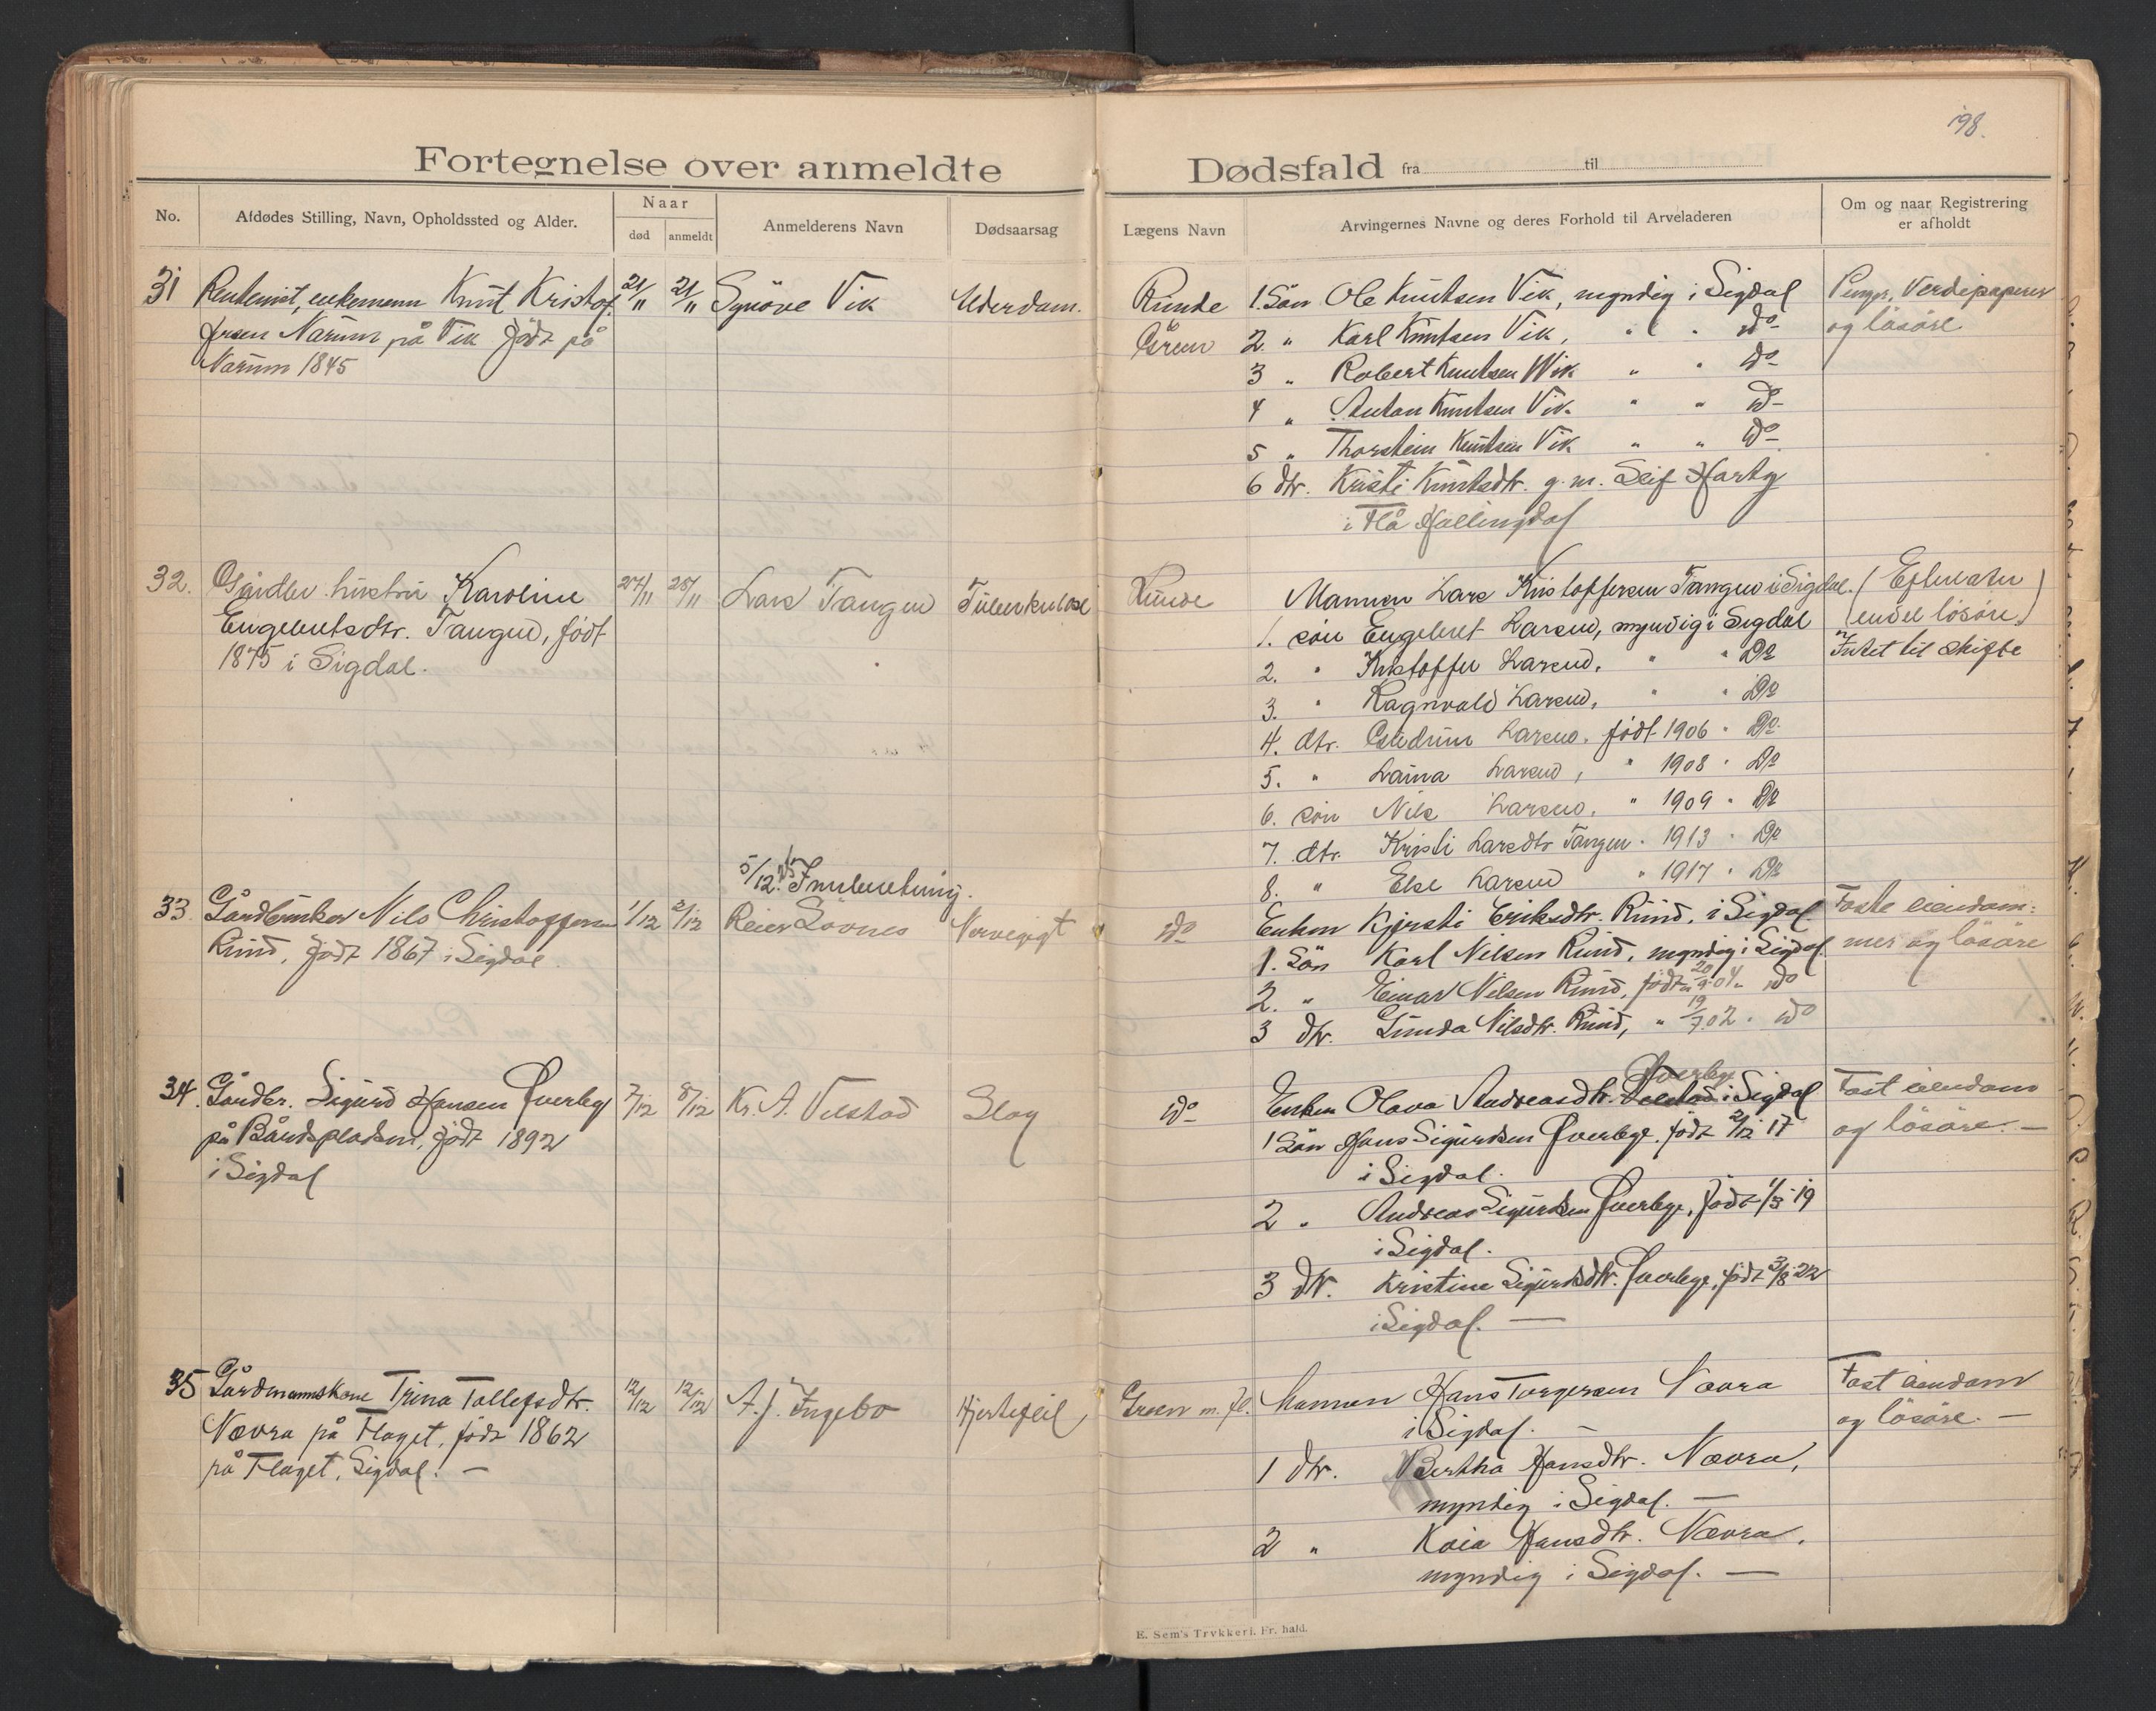 198.
Fortegnelse over anmeldte Dødsfald fra til
No. Afdødes Stilling, Navn, Opholdssted og Alder. Naar død anmeldt Anmelderens Navn Dødsaarsag Lægens Navn Arvingernes Navne og deres Forhold til Arveladeren Om og naar Registrering er afholdt
31 Rentenist, enkemann Knut Kristof- 21/11 21/11 Synöve Vik
fersen Narum på Vik født på
Narum 1845
Runde 1. Sön Ole Knutsen Vik, myndig i Sigdal Penger, Verdipapirer
Green 2. " Karl Knutsen Vik, " " do og lösöre
3 " Robert Knutsen Wik " " do
4 " Anton Knutsen Vik " " do
5 " Thorstein Knutsen Vik " " do
6 dtr. Kristi Knutsdtr. g. m. Leif
i Flå Hallingdal
32. Gårdbr. hustru Karoline 27/11 28/11 Lars Tangen Tuberkulose
Engebretsdtr. Tangen, født
1875 i Sigdal.
Lunde Mannen Lars Kristoffersen Tangen i Sigdal. (Efterlater
1. sön Engebret Larsen, myndig i Sigdal endel lösöre.)
2. " Kristoffer Larsen, " " Do Intet til skifte
3. " Ragnvald Larsen, " " Do
4. dtr. Gudrun Larsen, født 1906 " Do
5. " Laura Larsen, " 1908 " Do
6. sön Nils Larsen, " 1909 " Do
7. dtr. Kristi Larsdtr Tangen " 1913 " Do
8. " Else Larsen " 1917 " Do
5/12. Innberetning.
33. Gårdbruker Nils Christoffersen 1/12 2/12 Reier Lövnes Nervegigt
Rud, født 1867 i Sigdal
do Enken Kjersti Eriksdtr. Rud, i Sigdal Faste eiendom-
1. Sön Karl Nilsen Rud, myndig i Sigdal. mer og lösöre
2. " Einar Nilsen Rud, født 20/9 04 " do
3 dtr. Gunda Nilsdtr. Rud, " 19/7 02 " do
34. Gårdbr. Sigurd Hansen Øverby 7/12 8/12 Kr. A. Velstad Slag
på Båndspladsen, født 1892
i Sigdal
Øverby
do Enken Olava Andreasdtr. Velstad i Sigdal Fast eiendom
1 Sön Hans Sigurdsen Øverby, født 2/12 17 og lösöre. —
i Sigdal.
2 " Andreas Sigurdsen Øverby, født 1/3 19
i Sigdal.
3 dtr. Kristine Sigurdsdtr. Øverby, født 3/8 22
i Sigdal. —
35 Gårdmannskone Trina Tollefsdtr. 12/12 12/12 A. J. Ingebo Hjertefeil
Nævra på Flaget, født 1862
på Flaget, Sigdal. —
Green m. fl. Mannen Hans Torgersen Nævra Fast eiendom
i Sigdal. og lösöre. —
1 dtr. Bertha Hansdtr. Nævra,
myndig i Sigdal. —
2 " Kaia Hansdtr. Nævra,
myndig i Sigdal. —
E. Sem's Trykkeri. Fr. hald.